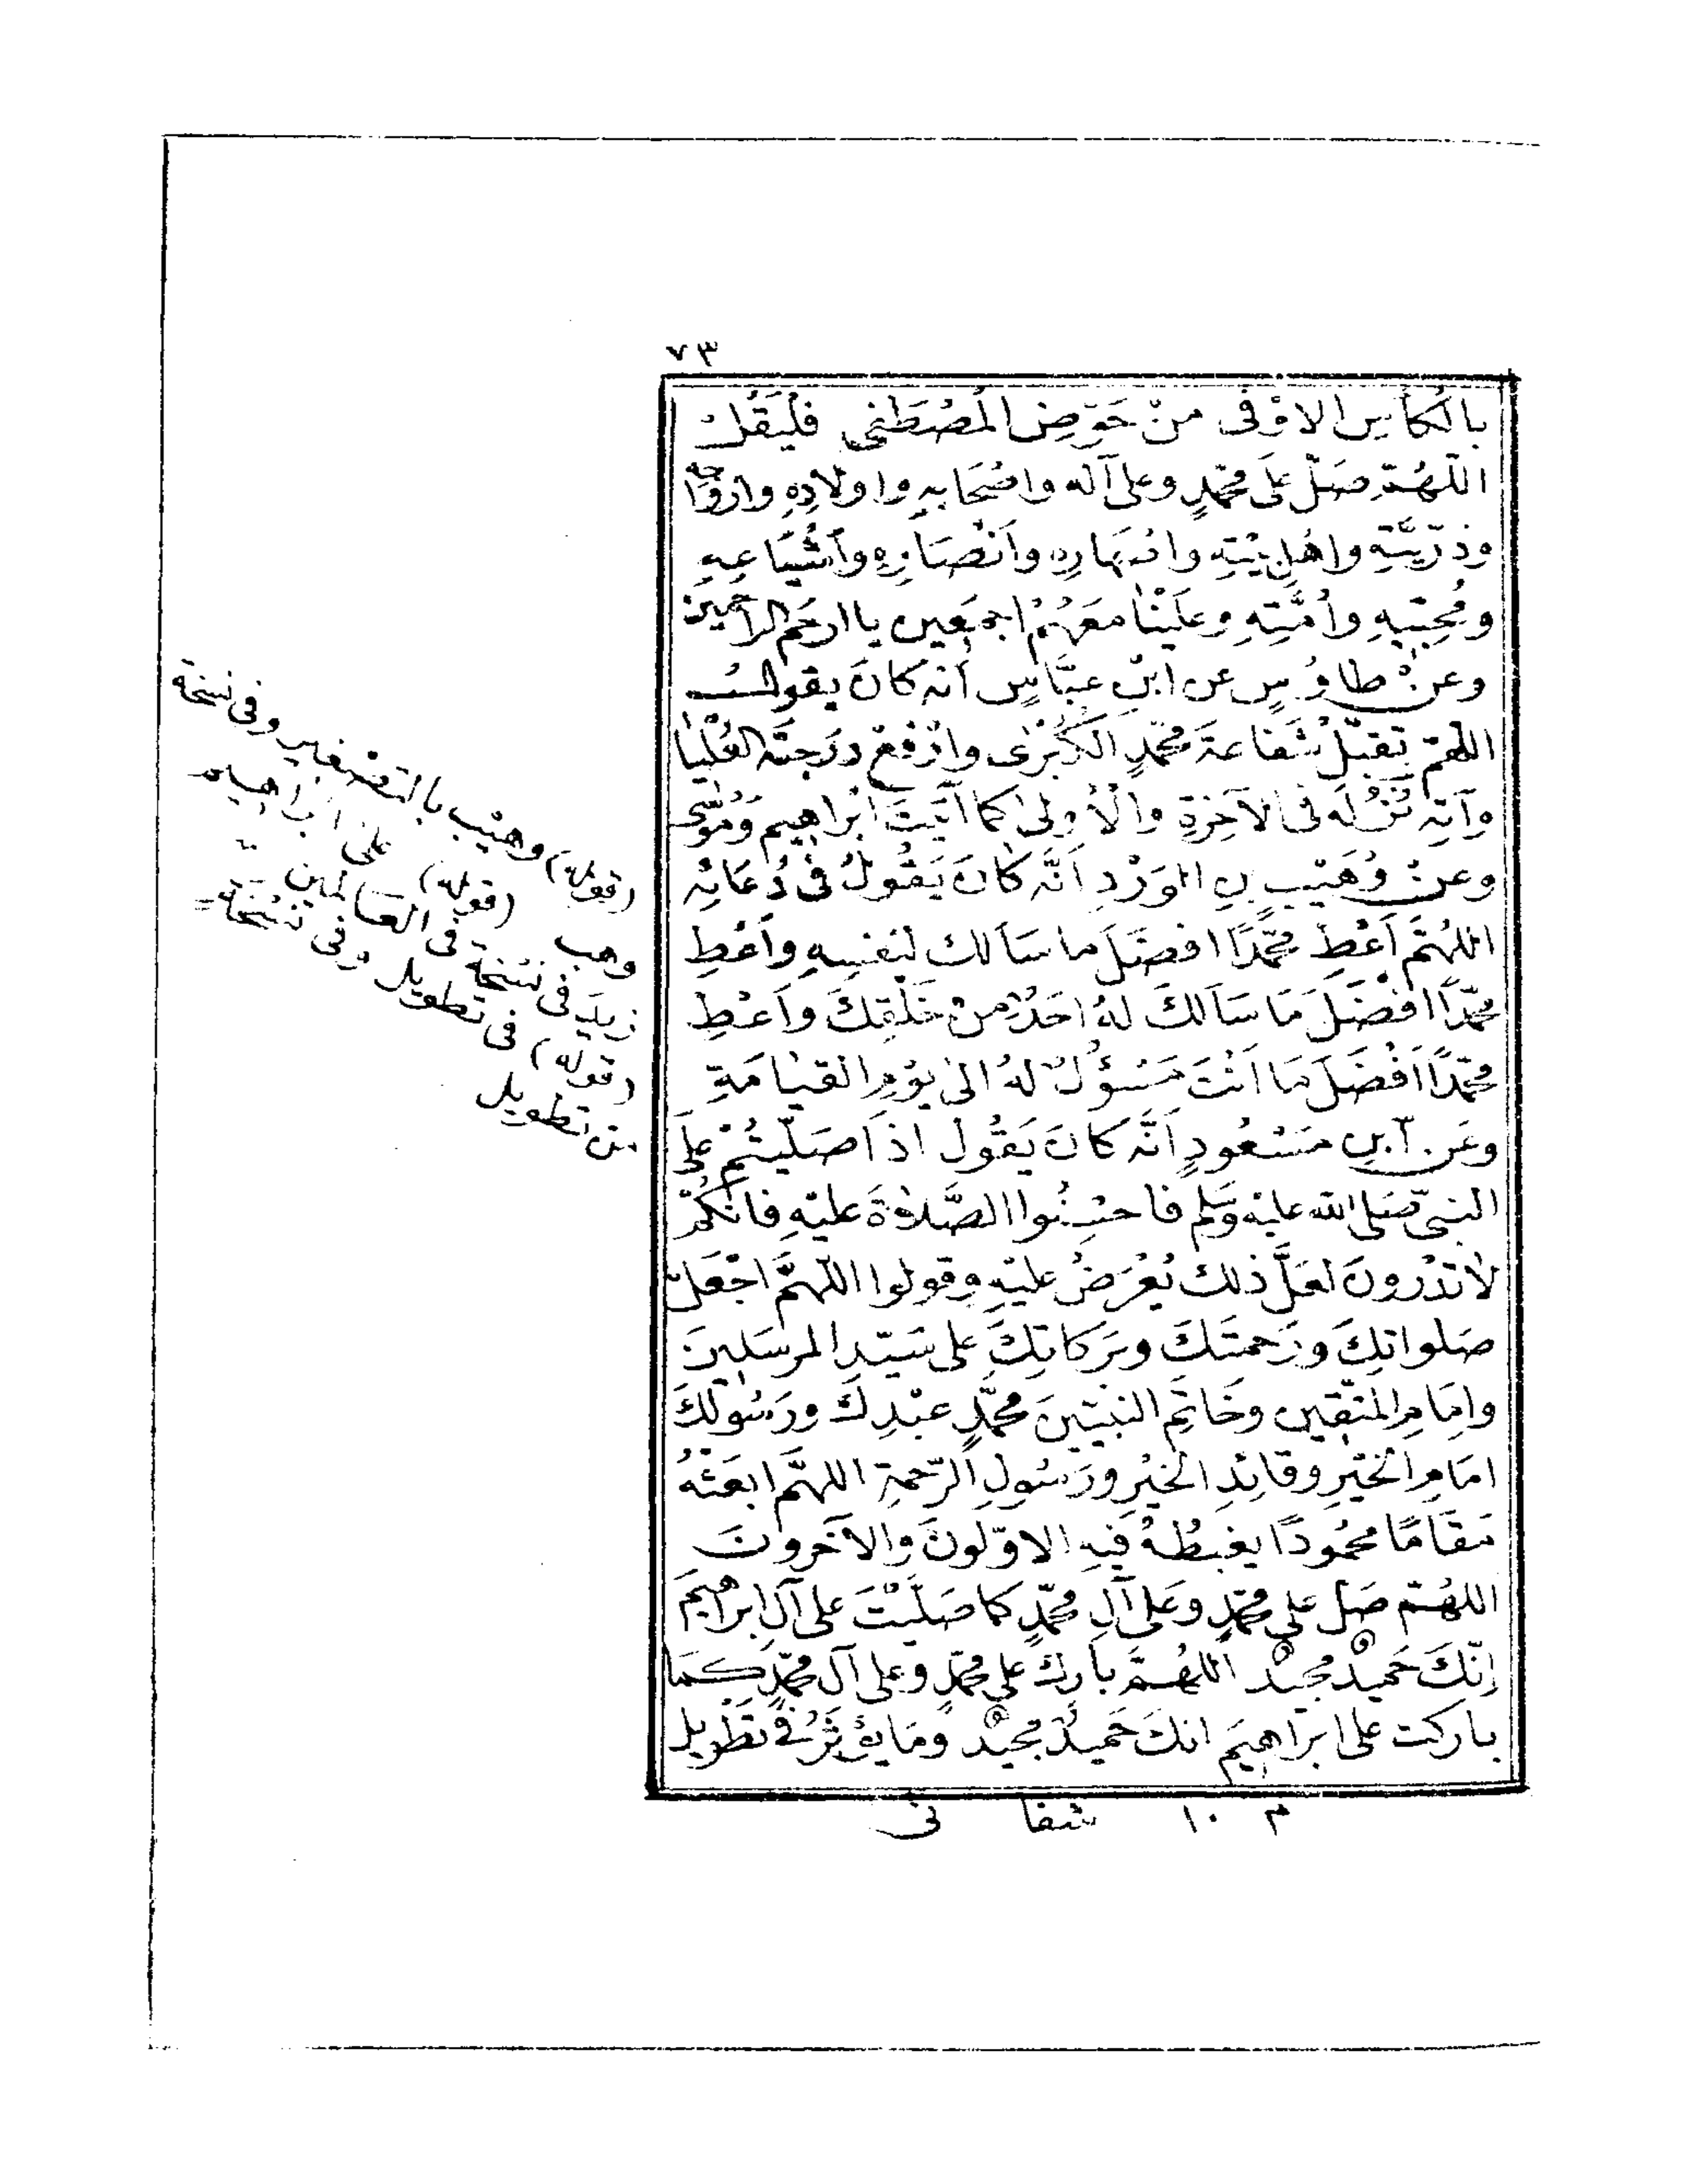 ٧٣
بِالْكَأْسِ الاَوْفٰى مِنْ حَوْضِ الْمُصْطَفٰى فَلْيَقُلْ
اللّٰهُمَّ صَلِّ عَلَى مُحَمَّدٍ وعلى آلِه واصْحَابِهِ واولادِهِ وازواجِهِ
وذُرِّيَّتِهِ واهْلِ بَيْتِهِ واصْهَارِهِ وأَنْصَارِهِ وأَشْيَاعِهِ
ومُحِبِّيهِ وأُمَّتِهِ وعَلَيْنَا مَعَهُمْ اجمَعِين يا ارحَمَ الراحِمِينَ
وعنْ طاوُسٍ عن ابْنِ عبَّاسٍ أنه كَانَ يقولُ
اللّهُمّ تَقَبَّلْ شَفَاعَةَ مُحَمَّدٍ الْكُبْرٰى وارْفَعْ دَرَجَتَهُ الْعُلْيَا
وآتِهِ سُؤْلَهُ فى الآخِرَةِ والْأُولٰى كما آتَيْتَ ابْرَاهِيمَ وَمُوسٰى
وعن وُهَيْبِ بنِ الوَرْدِ أَنَّه كَانَ يَقُولُ فى دُعَائِهِ
اللّٰهُمَّ أَعْطِ مُحَمَّدًا افضَلَ ما سَأَلك لِنَفْسِهِ وأَعْطِ
مُحَمَّدًا افْضَلَ مَا سَأَلَكَ لَهُ احَدٌ مِنْ خَلْقِكَ وأَعْطِ
مُحَمَّدًا أَفْضَلَ مَا أَنْتَ مَسْؤُلٌ لَهُ الى يَوْمِ القيامَةِ
وعَن ابنِ مَسْعُودٍ أَنَّه كَانَ يَقُولُ اذَا صَلَّيْتُمْ عَلَى
النبىّ صَلى الله عليه وَسَلم فاحْسِنُوا الصَّلٰوةَ عليهِ فانّكُمْ
لاتَدْرُونَ لعَلَّ ذلك يُعْرَضُ عليْهِ وقولوا اللّٰهُمَّ اجْعَلْ
صَلواتِكَ ورَحمتَكَ وبَرَكاتِكَ على سَيّدِ المرسَلِينَ
وامَامِ المتّقين وخَاتِمِ النبيّينَ محمَّدٍ عبْدِكَ ورَسُولِكَ
امَامِ الخَيْرِ وقائِدِ الخَيْرِ ورَسُولِ الرّحمةِ اللهُمَّ ابعَثْهُ
مَقَامًا محمُودًا يغبِطُهُ فيهِ الاوّلونَ والآخرونَ
اللهُمّ صَل على محمّدٍ وعَلى آلِ محمّدٍ كما صَلّيْتَ على آلِ ابرَاهِيمَ
اِنّكَ حَمِيدٌ مجيدٌ اللهُمَّ بَارِك على محمّدٍ وعلى آل محمّدٍ كَمَا
باركت على ابرَاهِيمَ انكَ حَمِيدٌ مجيدٌ ومَا يُؤْثَرُ فى تَطْوِيلِ
م ١٠ شفا نى
(قوله) وهيْب بالتصْغير وفى نسخة
وهب (قوله) على ابراهيم
زيد فى نسْخة فى العالمين
(قوله) فى تطويل وفى نسْخة
من تطويل